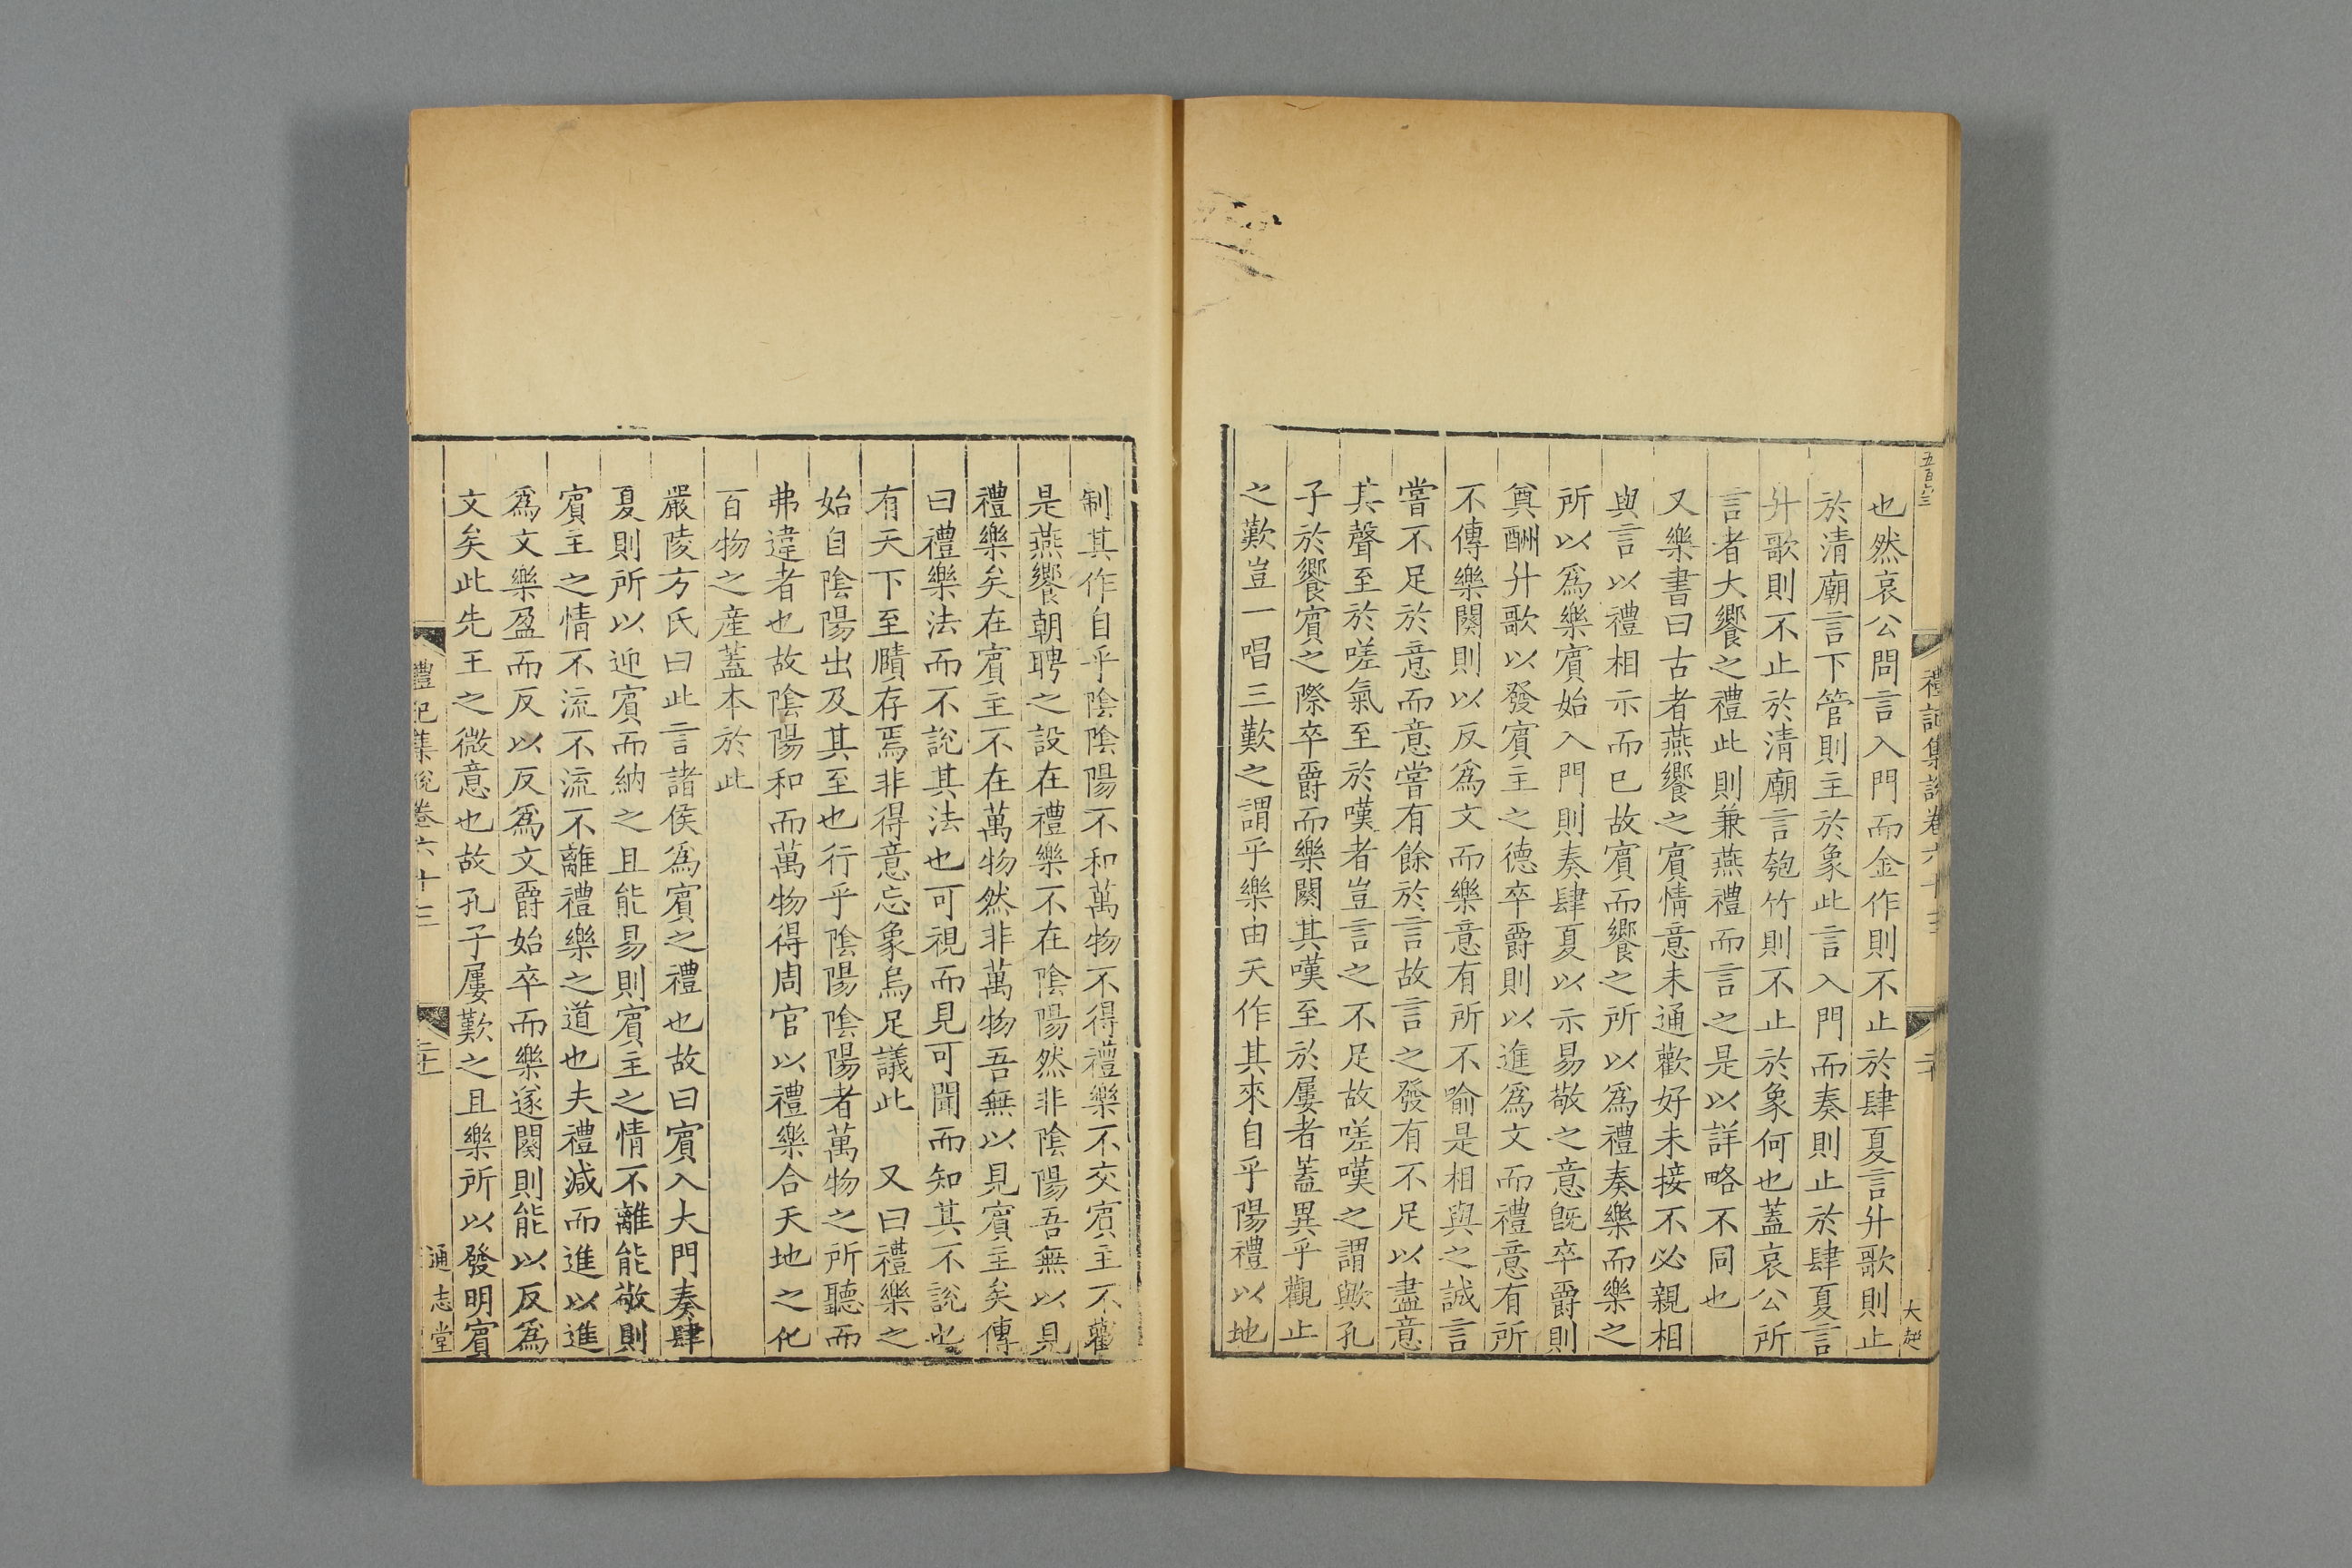 五百六三
禮記集說卷六十三
二十
大楚
也然哀公問言入門而金作則不止於肆夏言升歌則止
於清廟言下管則主於象此言入門而奏則止於肆夏言
升歌則不止於清廟言匏竹則不止於象何也蓋哀公所
言者大饗之禮此則兼燕禮而言之是以詳略不同也
又樂書曰古者燕饗之賓情意未通歡好未接不必親相
與言以禮相示而已故賓而饗之所以爲禮奏樂而樂之
所以爲樂賓始入門則奏肆夏以示易敬之意旣卒爵則
奠酬升歌以發賓主之德卒爵則以進爲文而禮意有所
不傳樂闋則以反爲文而樂意有所不喻是相與之誠言
嘗不足於意而意嘗有餘於言故言之發有不足以盡意
其聲至於嗟氣至於嘆者豈言之不足故嗟嘆之謂歟孔
子於饗賓之際卒爵而樂闋其嘆至於屢者蓋異乎觀止
之歎豈一唱三歎之謂乎樂由天作其來自乎陽禮以地
制其作自乎陰陰陽不和萬物不得禮樂不交賓主不歡
是燕饗朝聘之設在禮樂不在陰陽然非陰陽吾無以見
禮樂矣在賓主不在萬物然非萬物吾無以見賓主矣傳
曰禮樂法而不說其法也可視而見可聞而知其不說也
有天下至賾存焉非得意忘象烏足議此 又曰禮樂之
始自陰陽出及其至也行乎陰陽陰陽者萬物之所聽而
弗違者也故陰陽和而萬物得周官以禮樂合天地之化
百物之產蓋本於此
嚴陵方氏曰此言諸侯爲賓之禮也故曰賓入大門奏肆
夏則所以迎賓而納之且能易則賓主之情不離能敬則
賓主之情不流不流不離禮樂之道也夫禮減而進以進
爲文樂盈而反以反爲文爵始卒而樂遂闋則能以反爲
文矣此先王之微意也故孔子屢歎之且樂所以發明賓
禮記集說卷六十三
二十一
通志堂